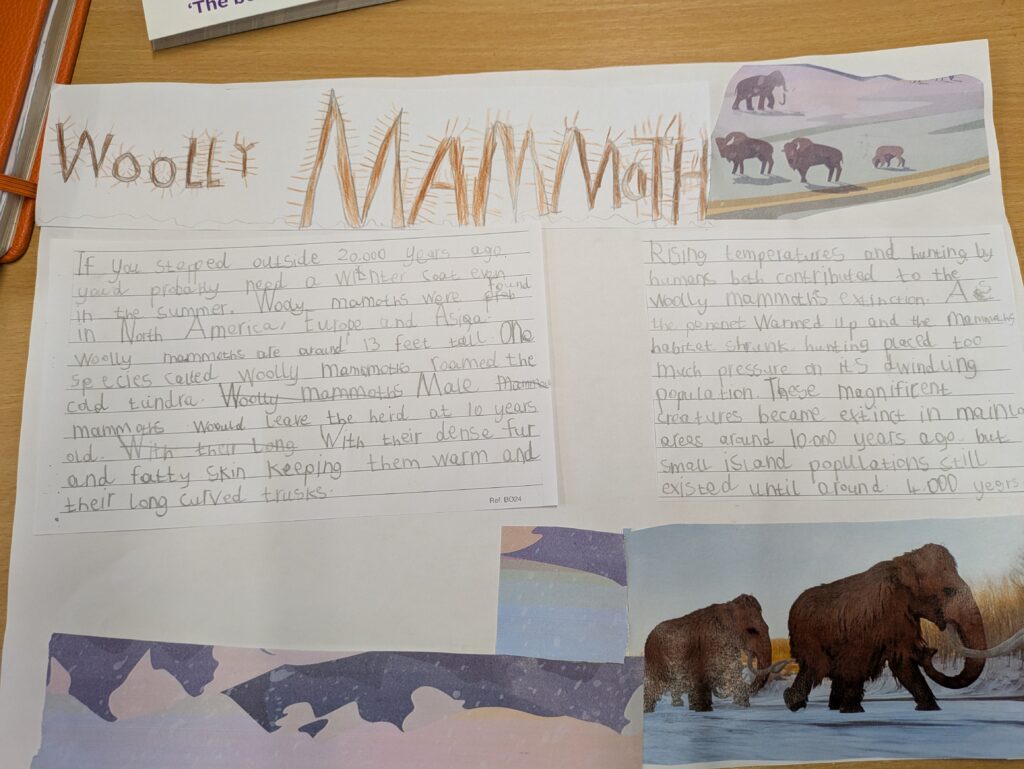 'The b
WOOLLY MAMMOTH
If you stepped outside 20,000 years ago,
you'd probably need a winter coat even
in the summer. Wooly mamoths were found
in North America, Europe and Asia.
Woolly mammoths are around 13 feet tall. One
species called woolly mammoths roamed the
cold tundra. Woolly mammoths Male mammoths
mammoths would leave the herd at 10 years
old. With their long With their dense fur
and fatty skin keeping them warm and
their long curved trusks.
Ref: BO24
Rising temperatures and hunting by
humans both contributed to the
woolly mammoth's extinction. As
the Warmed up and the mammoths
habitat shrunk. hunting placed too
much pressure on its dwindling
population. These magnificent
creatures became extinct in mainla
areas around 10.000 years ago. but
small island populations still
existed until around 4.000 years